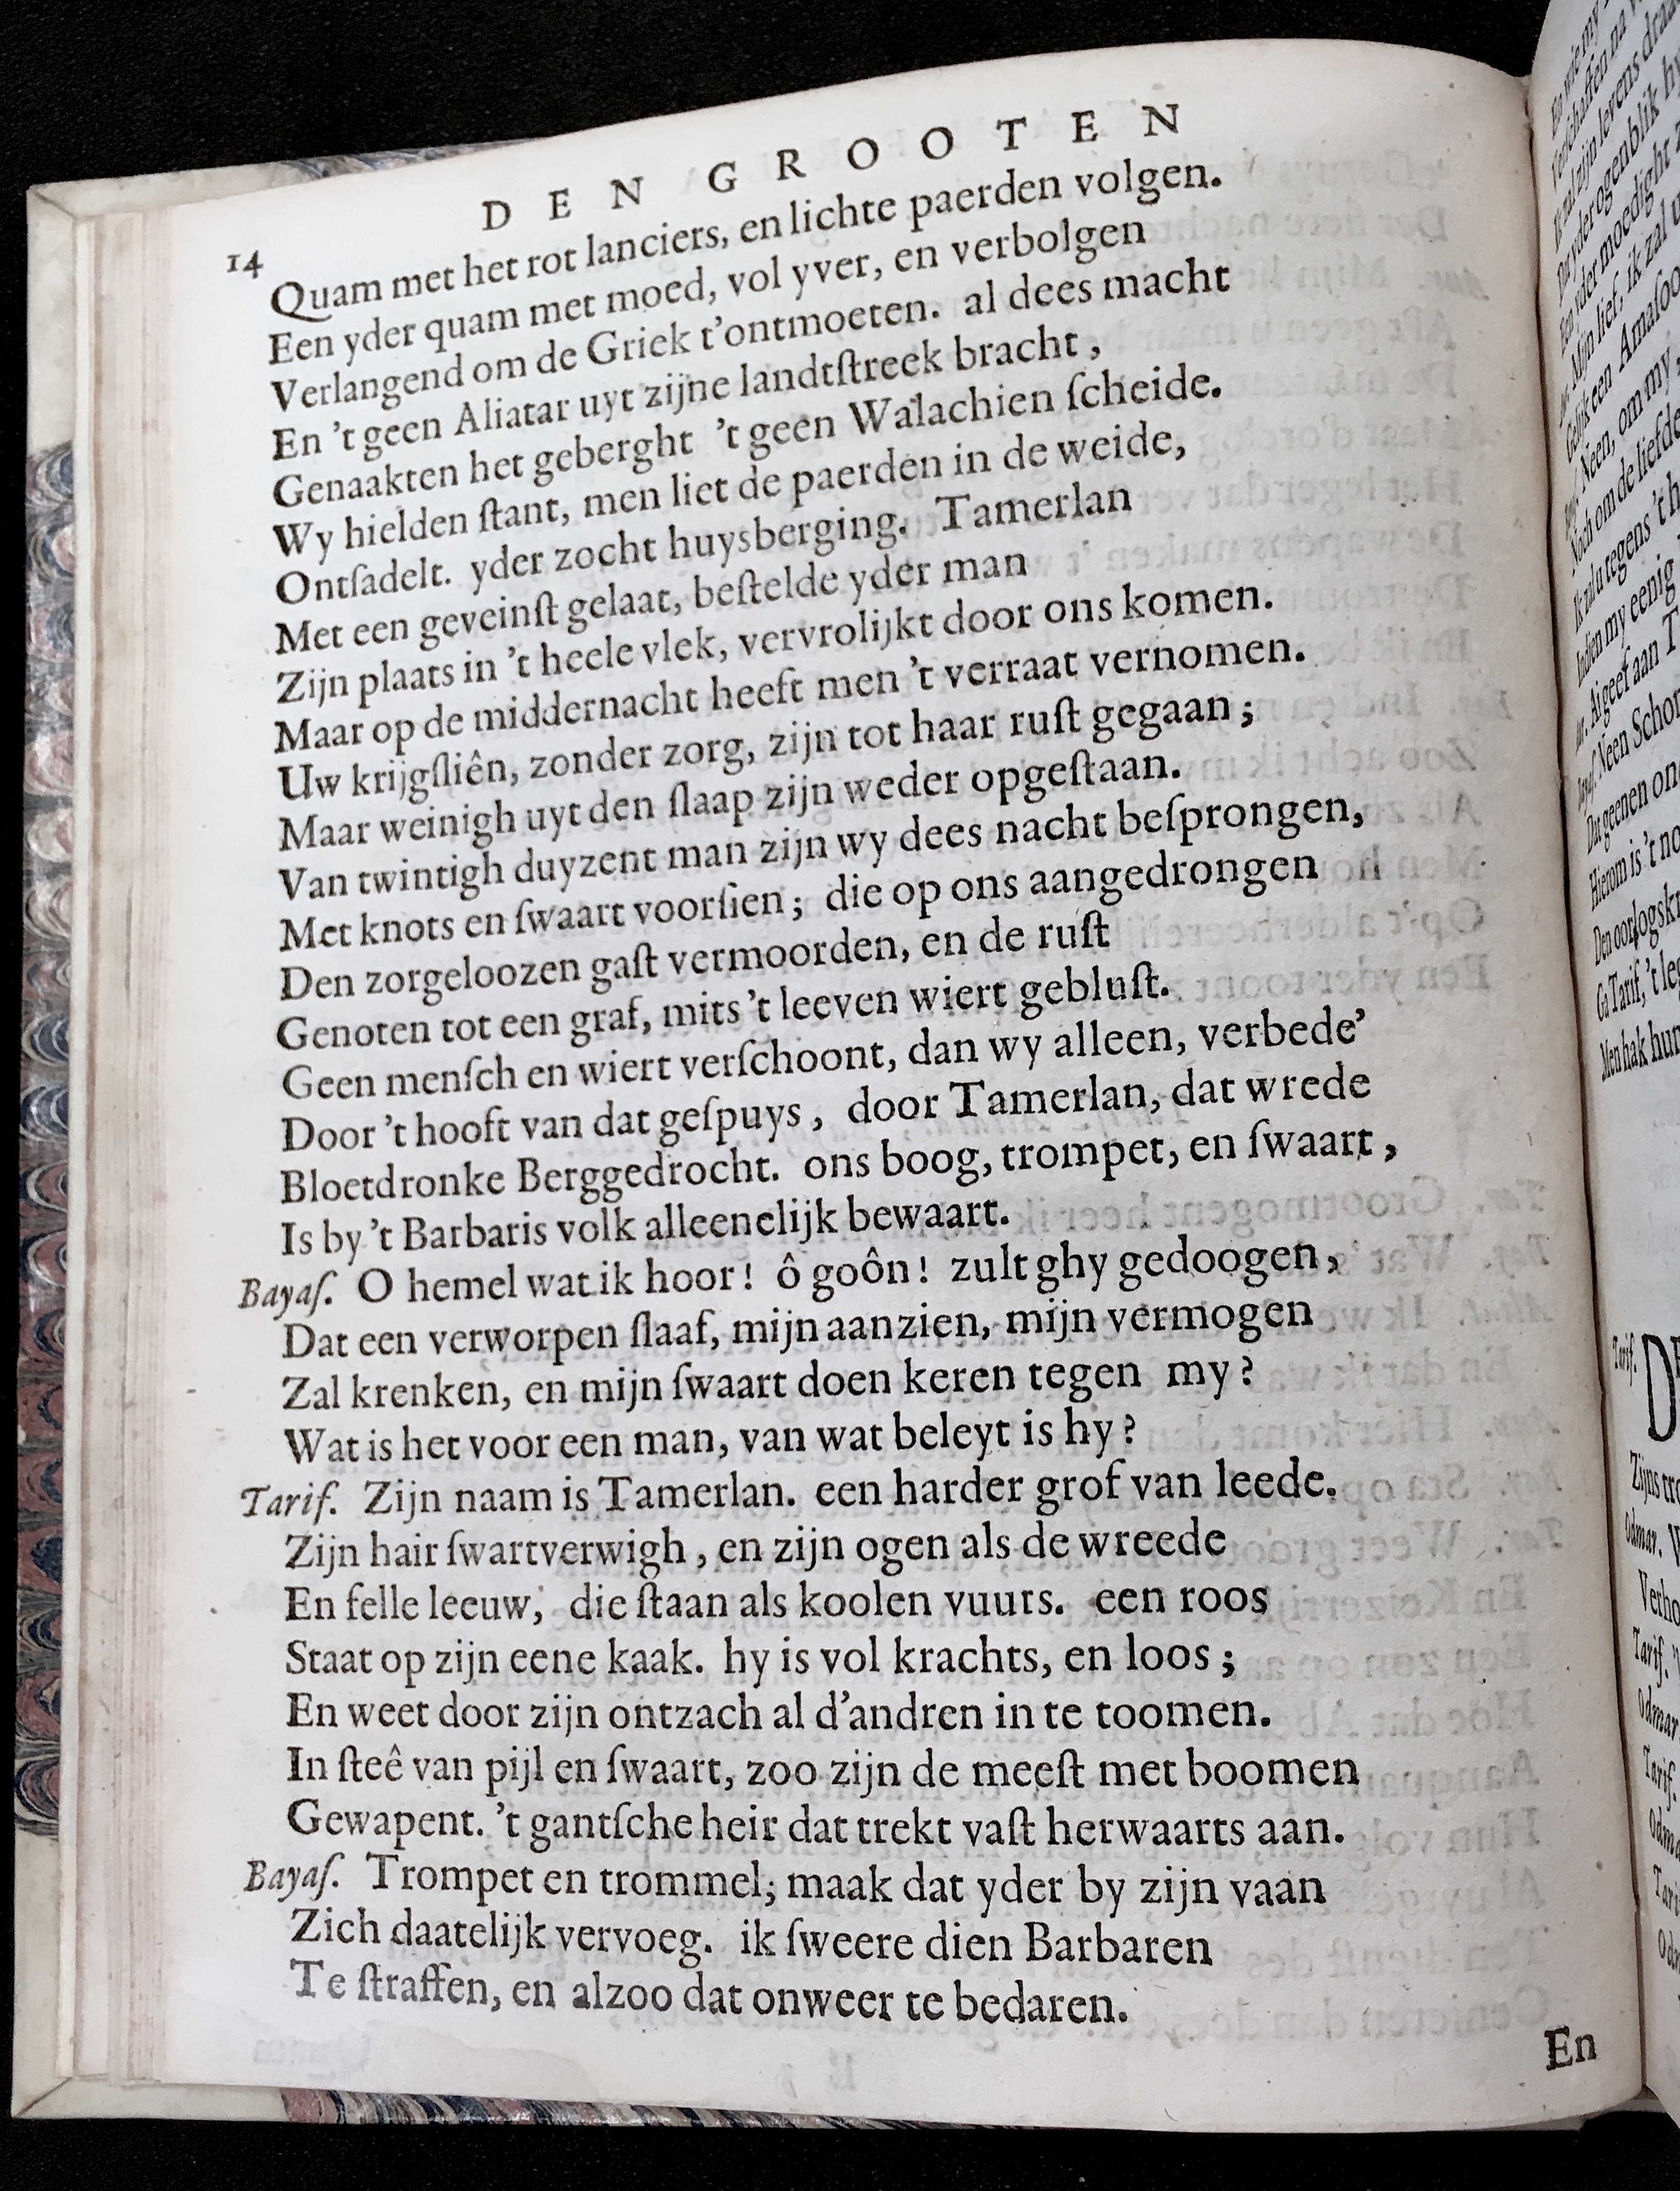 14 DEN GROOTEN
Quam met het rot lanciers, en lichte paerden volgen.
Een yder quam met moed, vol yver, en verbolgen
Verlangend om de Griek t'ontmoeten. al dees macht
En 't geen Aliatar uyt zijne landtſtreek bracht,
Genaakten het geberght 't geen Walachien ſcheide.
Wy hielden ſtant, men liet de paerden in de weide,
Ontſadelt. yder zocht huysberging. Tamerlan
Met een geveinſt gelaat, beſtelde yder man
Zijn plaats in 't heele vlek, vervrolijkt door ons komen.
Maar op de middernacht heeft men 't verraat vernomen.
Uw krijgſliên, zonder zorg, zijn tot haar ruſt gegaan;
Maar weinigh uyt den ſlaap zijn weder opgeſtaan.
Van twintigh duyzent man zijn wy dees nacht beſprongen,
Met knots en ſwaart voorſien; die op ons aangedrongen
Den zorgeloozen gaſt vermoorden, en de ruſt
Genoten tot een graf, mits 't leeven wiert gebluſt.
Geen menſch en wiert verſchoont, dan wy alleen, verbede'
Door 't hooft van dat geſpuys, door Tamerlan, dat wrede
Bloetdronke Berggedrocht. ons boog, trompet, en ſwaart,
Is by 't Barbaris volk alleenelijk bewaart.
Bayaſ. O hemel wat ik hoor! ô goôn! zult ghy gedoogen,
Dat een verworpen ſlaaf, mijn aanzien, mijn vermogen
Zal krenken, en mijn ſwaart doen keren tegen my?
Wat is het voor een man, van wat beleyt is hy?
Tarif. Zijn naam is Tamerlan. een harder grof van leede.
Zijn hair ſwartverwigh, en zijn ogen als de wreede
En felle leeuw, die ſtaan als koolen vuurs. een roos
Staat op zijn eene kaak. hy is vol krachts, en loos;
En weet door zijn ontzach al d'andren in te toomen.
In ſteê van pijl en ſwaart, zoo zijn de meeſt met boomen
Gewapent. 't gantſche heir dat trekt vaſt herwaarts aan.
Bayaſ. Trompet en trommel; maak dat yder by zijn vaan
Zich daatelijk vervoeg. ik ſweere dien Barbaren
Te ſtraffen, en alzoo dat onweer te bedaren.
En